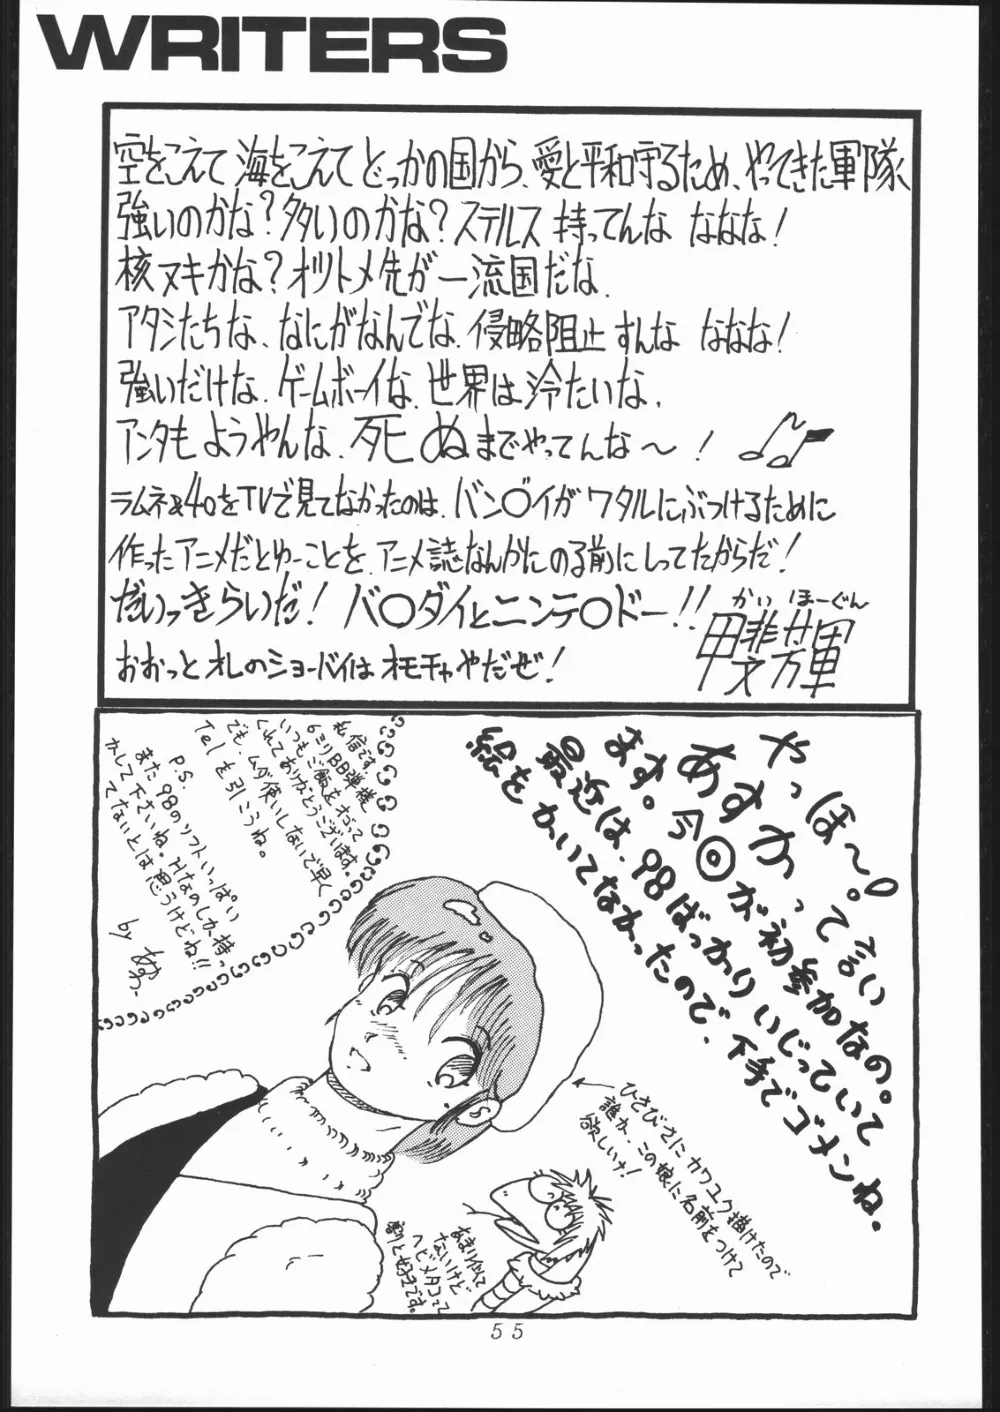 WRITERS
空をこえて 海をこえて どっかの国から、愛と平和守るため、やってきた軍隊
強いのかな?多いのかな?ステルス 持ってんな ななな!
核ヌキかな?オリトメ先が一流国だな、
アタシたちな、なにがなんでな、侵略阻止すんな ななな!
強いだけな、ゲームボーイな、世界は冷たいな、
アンタもようやんな、死ぬまでやってんな〜!
ラムネ&40をTVで見てなかったのは、バン〇イがワタルにぶつけるために
作ったアニメだとゆーことを、アニメ誌なんかにのる前にしってたからだ!
だいっきらいだ!バ〇ダイとニンテ〇ドー!!
かい ほーぐん
甲斐芳軍
おおっと オレのショーバイは オモチャやだぜ!
やっほ〜。
あすかって言い
ます。今回が初参加なの。
最近は、98ばっかりいじっていて
絵をかいてなかったので、下手でゴメンね。
私信です。
6ミリBB弾様
いつもご飯をおごって
くれてありがとうございます。
でも、ムダ使いしないで早く
Telを引こうね。
P.S.
また98のソフトいっぱい
かして下さいね。Hなのしか持っ
てないとは思うけどね!!
by あすか
ひさびさに カワユク描けたので
誰か、この娘に名前をつけて
欲しいナ!
あまり似て
ないけど
ヘビメタコって
割と好きです。
55